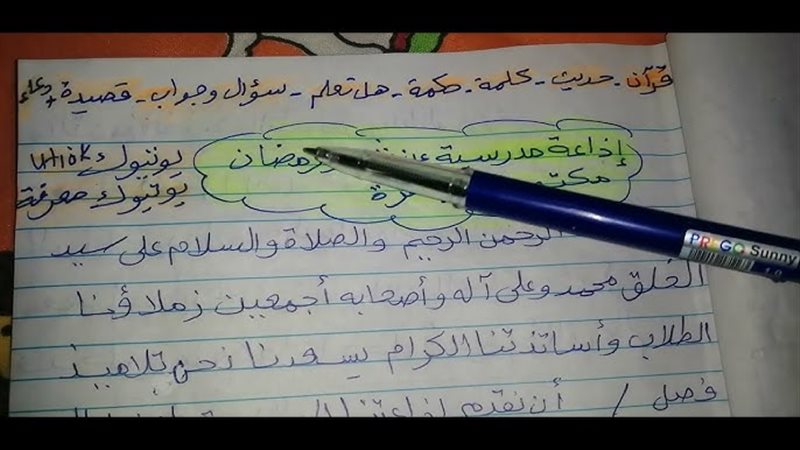 قرآن - حديث - كلمة - حكمة - هل تعلم - سؤال وجواب - قصيدة + دعاء
إذاعة مدرسية عن رمضان
يوتيوك
يوتيوك معرفة
الرحمن الرحيم والصلاة والسلام على سيد
الخلق محمد وعلى آله وأصحابه أجمعين زملاؤنا
الطلاب وأساتذتنا الكرام يسعدنا نحن تلاميذ
فصل / أن نقدم إذاعتنا
PREGO Sunny
1.0